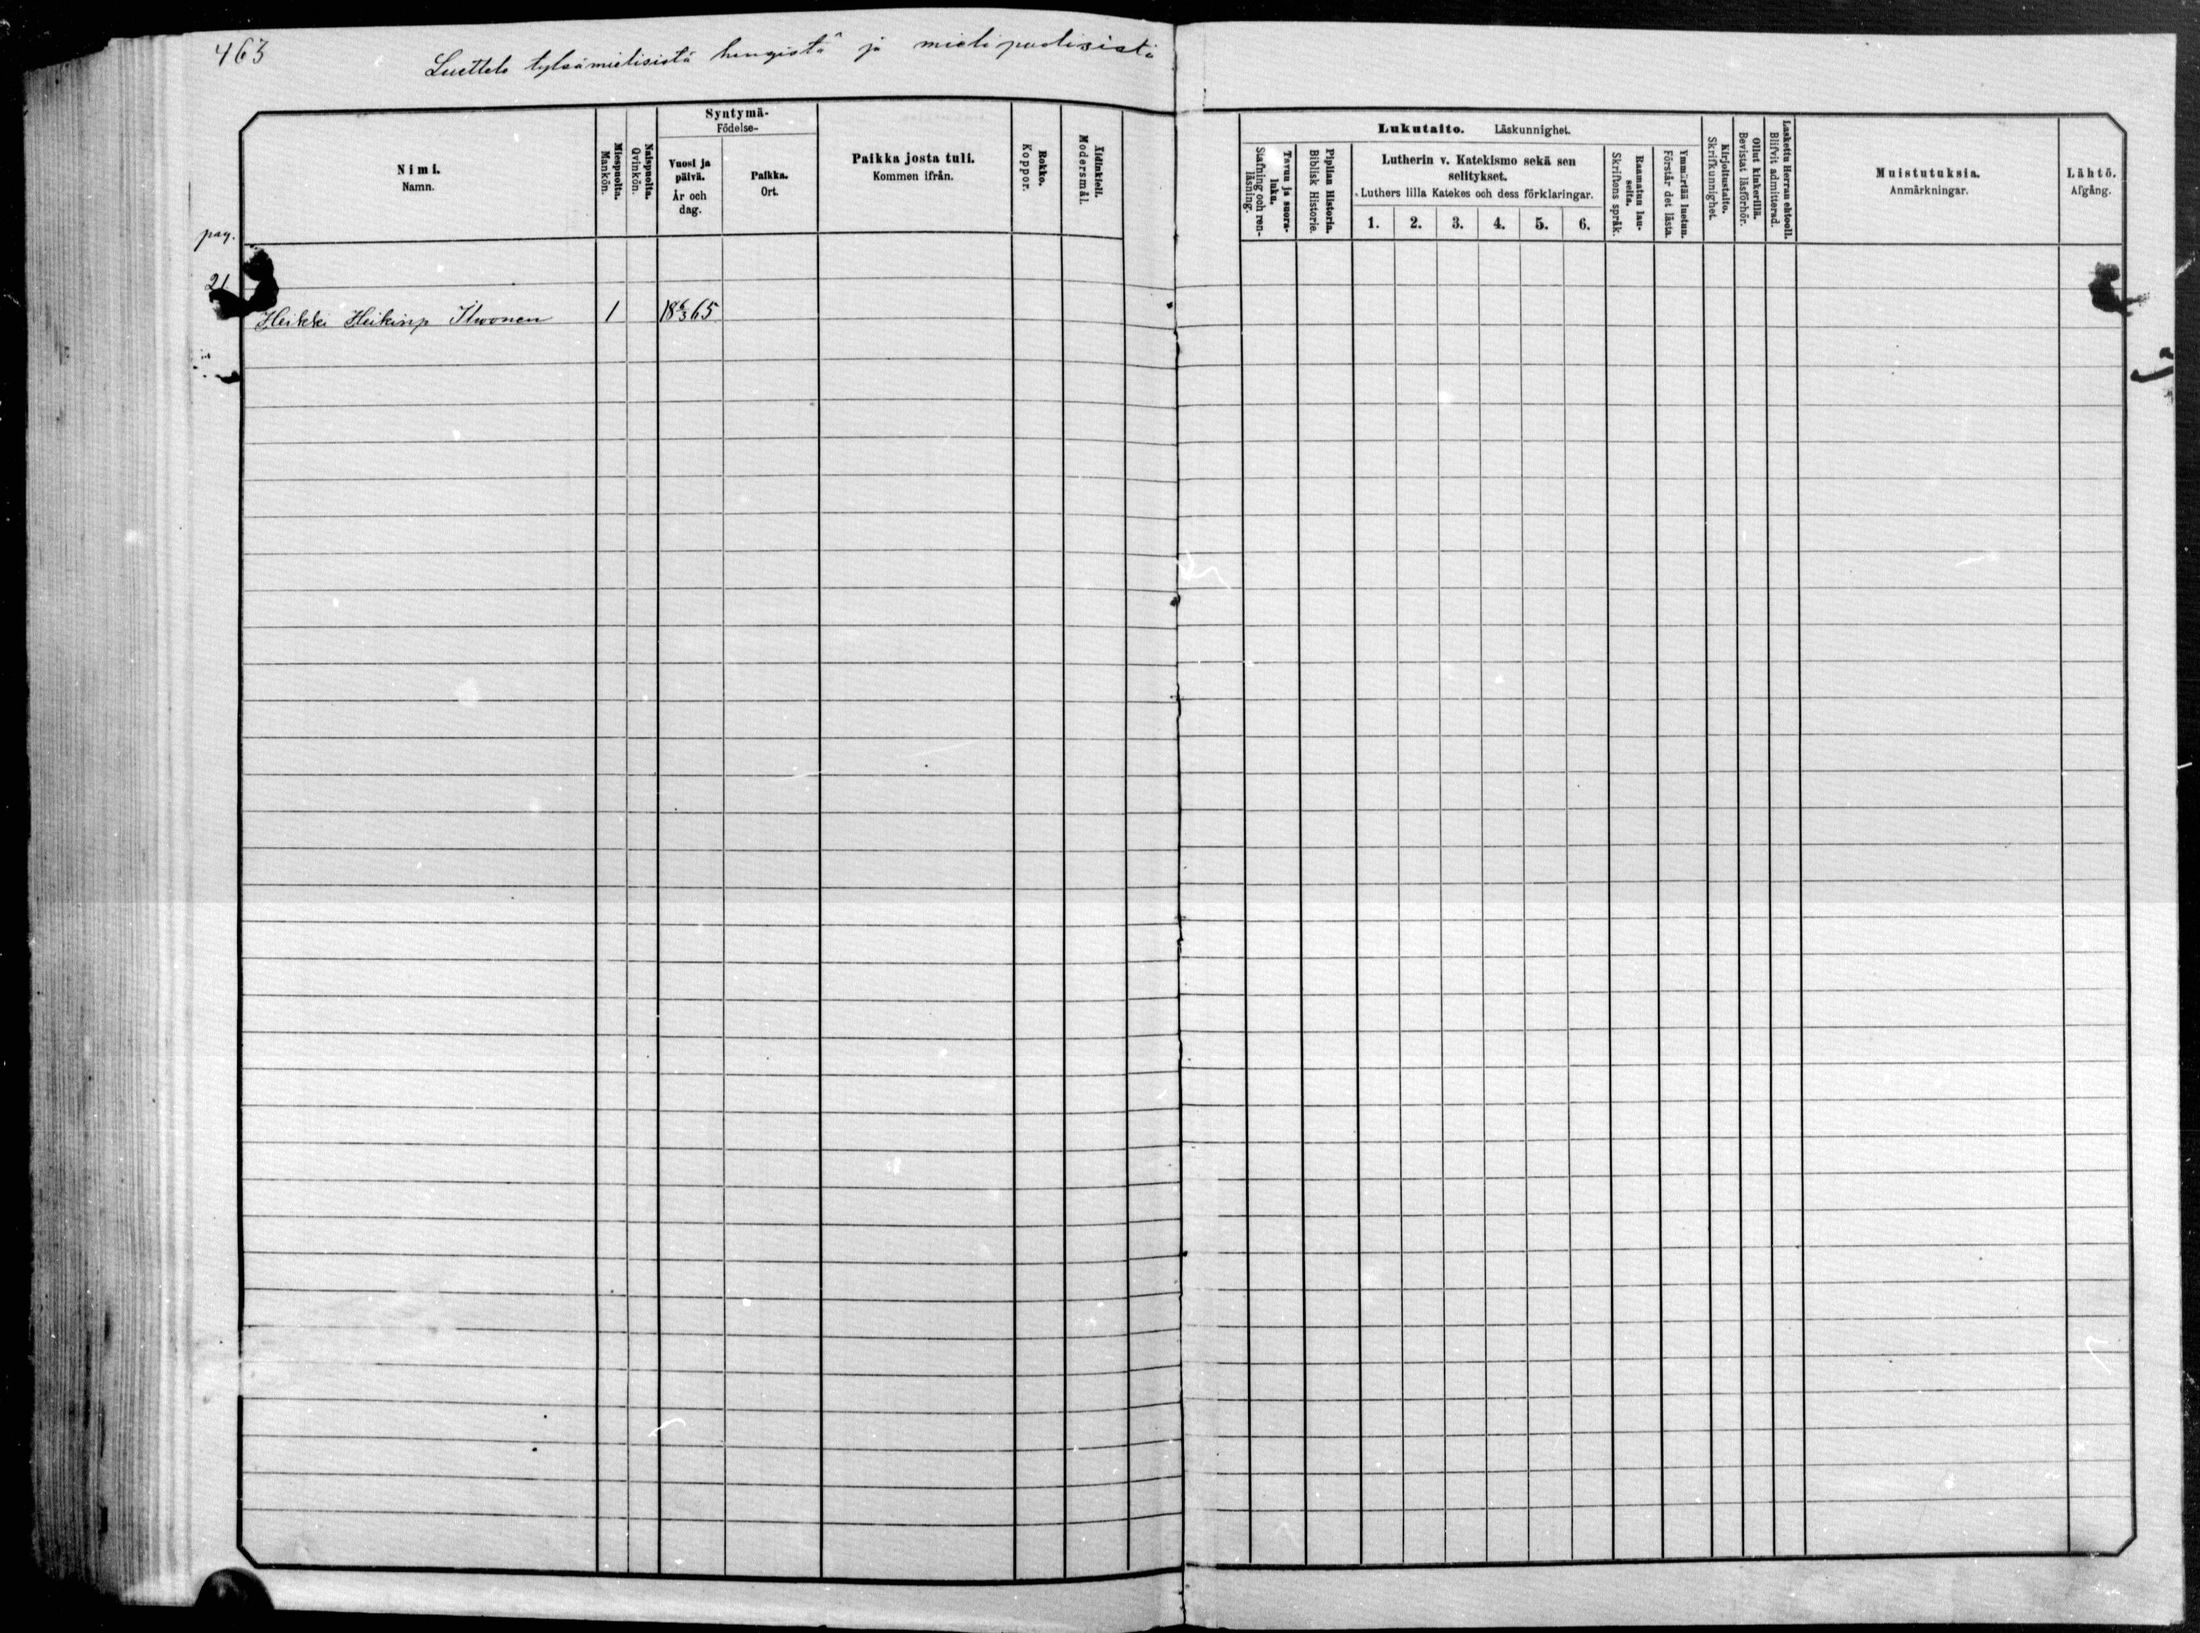 463
Luettelo tylsämielisistä hengistä ja mielipuolisista
Nimi.
Namn.
Miespuolia.
Mankön.
Naispuolia.
Qvinkön.
Syntymä-
Födelse-
Vuosi ja
päivä.
År och
dag.
Paikka.
Ort.
Paikka josta tuli.
Kommen ifrån.
Rokko.
Koppor.
Äidinkieli.
Modersmål.
Lukutaito. Läskunnighet.
Tavuu ja suora-
luku.
Stafning och ren-
läsning.
Piplian Historia.
Biblisk Historie.
Lutherin v. Katekismo sekä sen
selitykset.
Luthers lilla Katekes och dess förklaringar.
1. 2. 3. 4. 5. 6.
Raamatun lau-
seita.
Skriftens språk.
Ymmärtää luetun.
Förstår det lästa.
Kirjoitustaito.
Skrifkunnighet.
Ollut kinkerillä.
Bevistat läsförhör.
Laskettu Herran ehtooll.
Blifvit admitterad.
Muistutuksia.
Anmärkningar.
Lähtö.
Afgång.
pag.
21
Heikki Heikinp 1 18 6/3 65